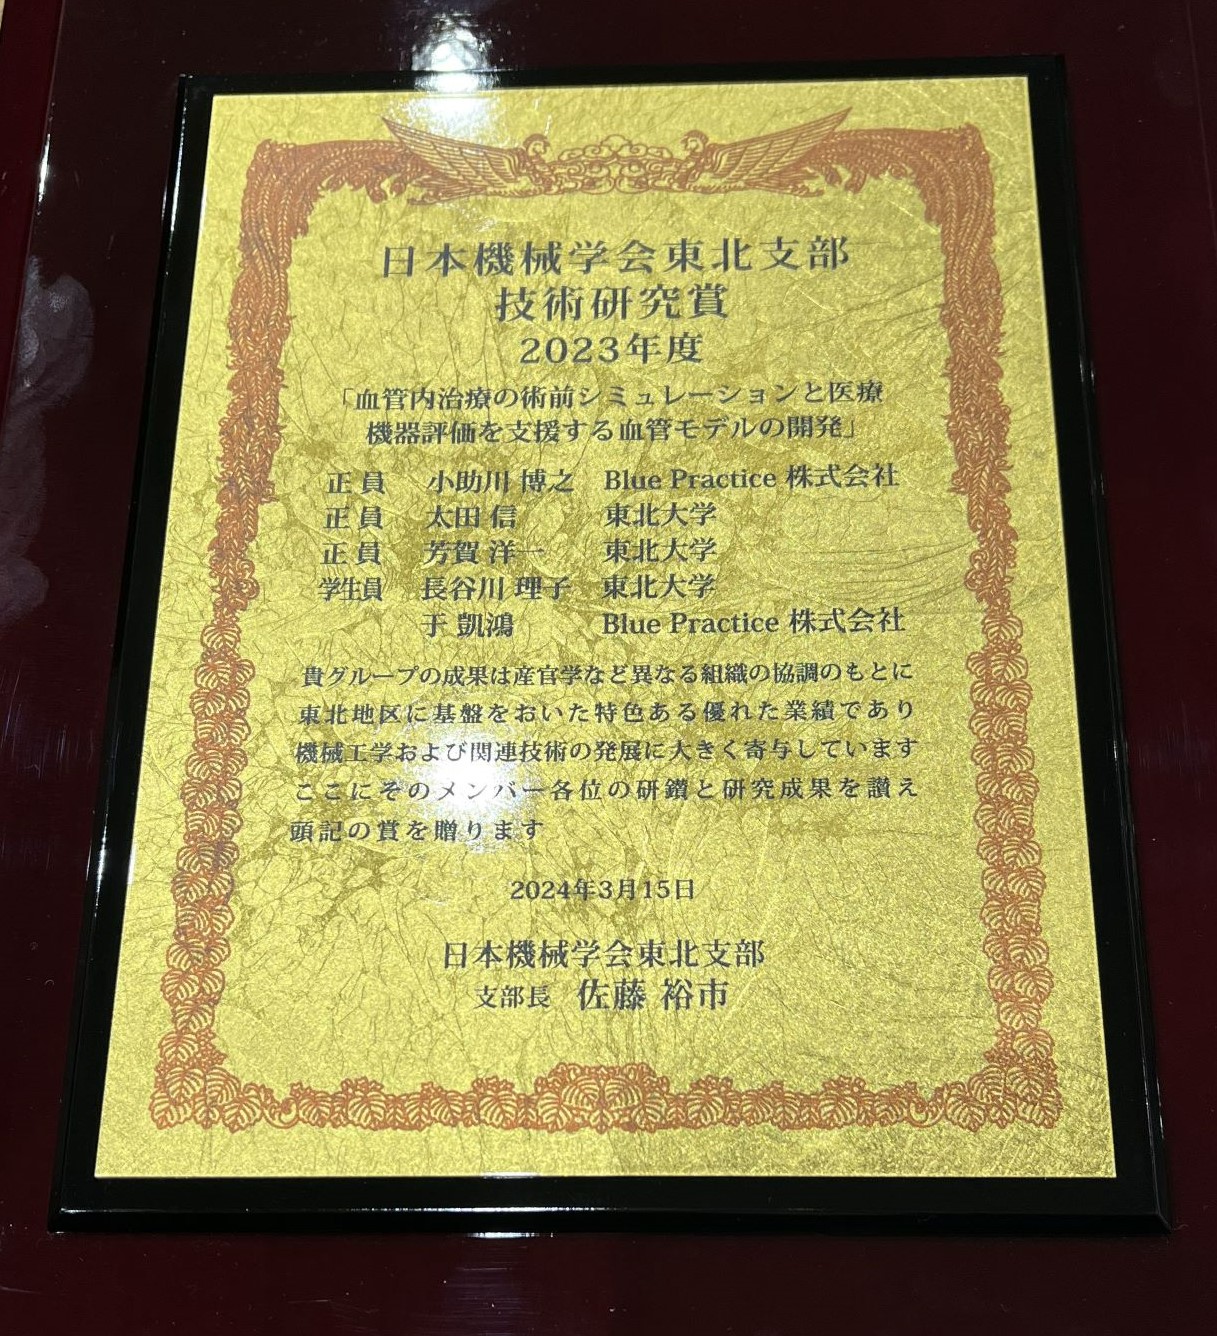 日本機械学会東北支部
技術研究賞
2023年度
「血管内治療の術前シミュレーションと医療
機器評価を支援する血管モデルの開発」
正員 小助川 博之 Blue Practice 株式会社
正員 太田 信 東北大学
正員 芳賀 洋一 東北大学
学生員 長谷川 理子 東北大学
于 凱鴻 Blue Practice 株式会社
貴グループの成果は産官学など異なる組織の協調のもとに
東北地区に基盤をおいた特色ある優れた業績であり
機械工学および関連技術の発展に大きく寄与しています
ここにそのメンバー各位の研鑽と研究成果を讃え
頭記の賞を贈ります
2024年3月15日
日本機械学会東北支部
支部長 佐藤 裕市